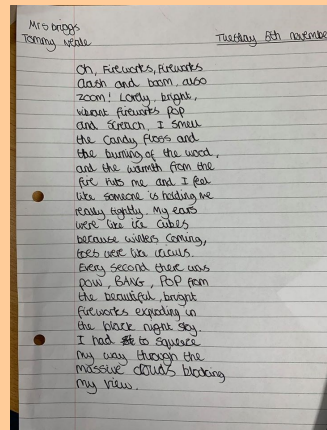 Mrs briggs
Tommy
Tuesday 5th november
Oh, Fireworks, Fireworks
clash and boom, also
zoom! Lovely, bright,
vibrant fireworks pop
and screach, I smell
the candy floss and
the burning of the wood,
and the warmth from the
fire hits me and I feel
like someone is holding me
really tightly. My ears
were like ice cubes
because winters coming,
toes were like icicals.
Every second there was
pow, BANG, POP from
the beautiful, bright
fireworks exploding in
the black night sky.
I had to squeeze
my way through the
massive clouds blocking
my view.